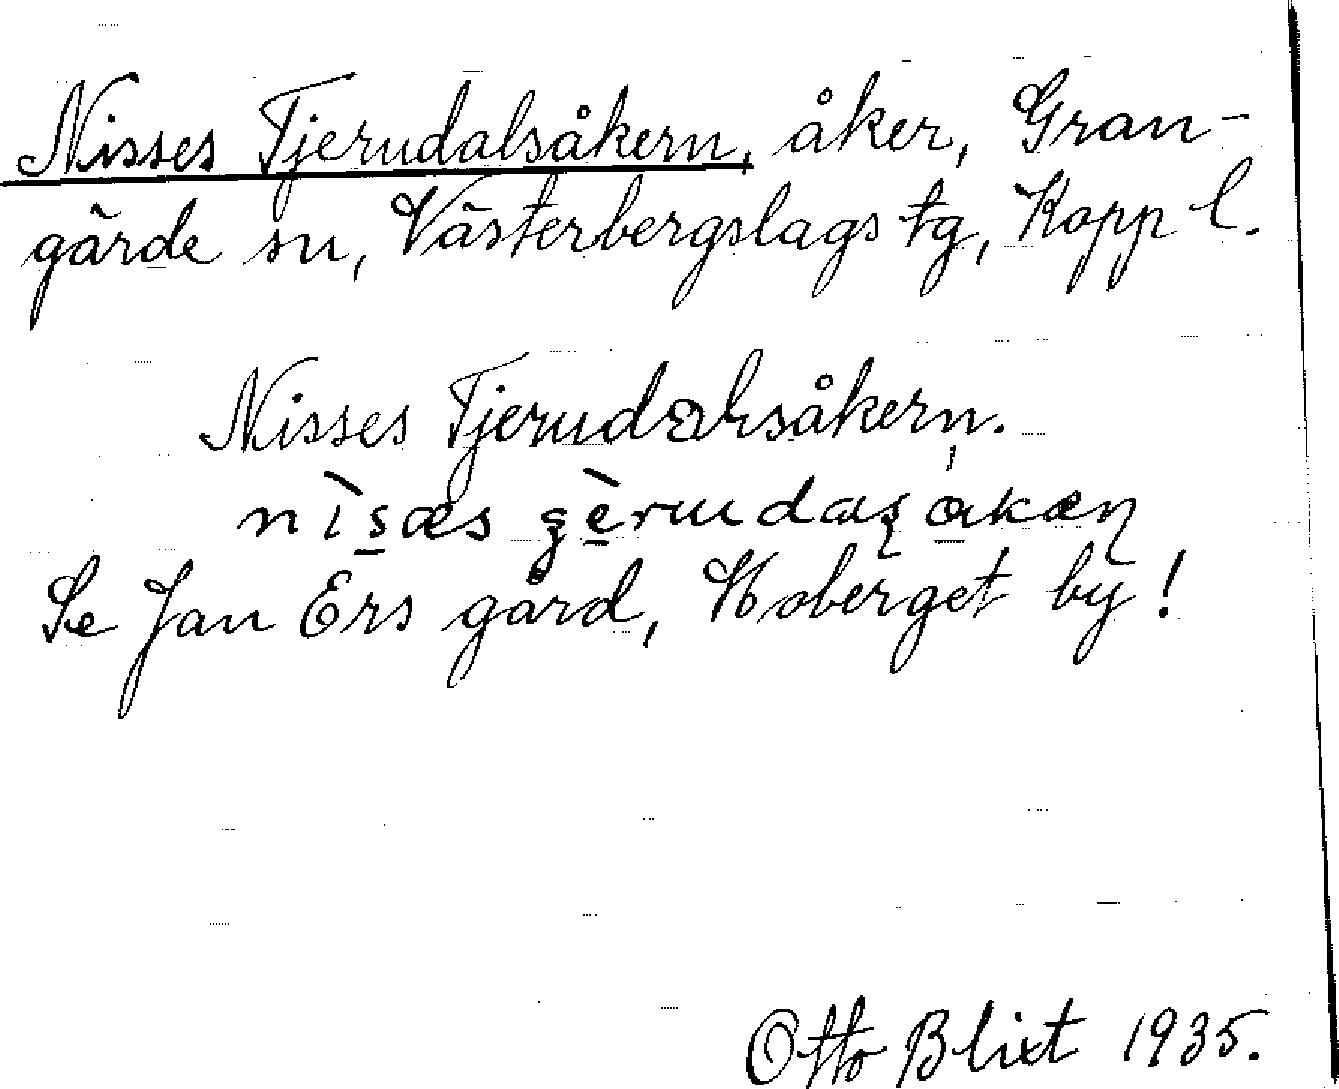 Nisses Tjerudalsåkern, åker, Gran-
gärde sn, Västerbergslags tg, Kopp l.
Nisses Tjerudalsåkern.
Se Jan Ers gård, Hoberget by!
Otto Blixt 1935.